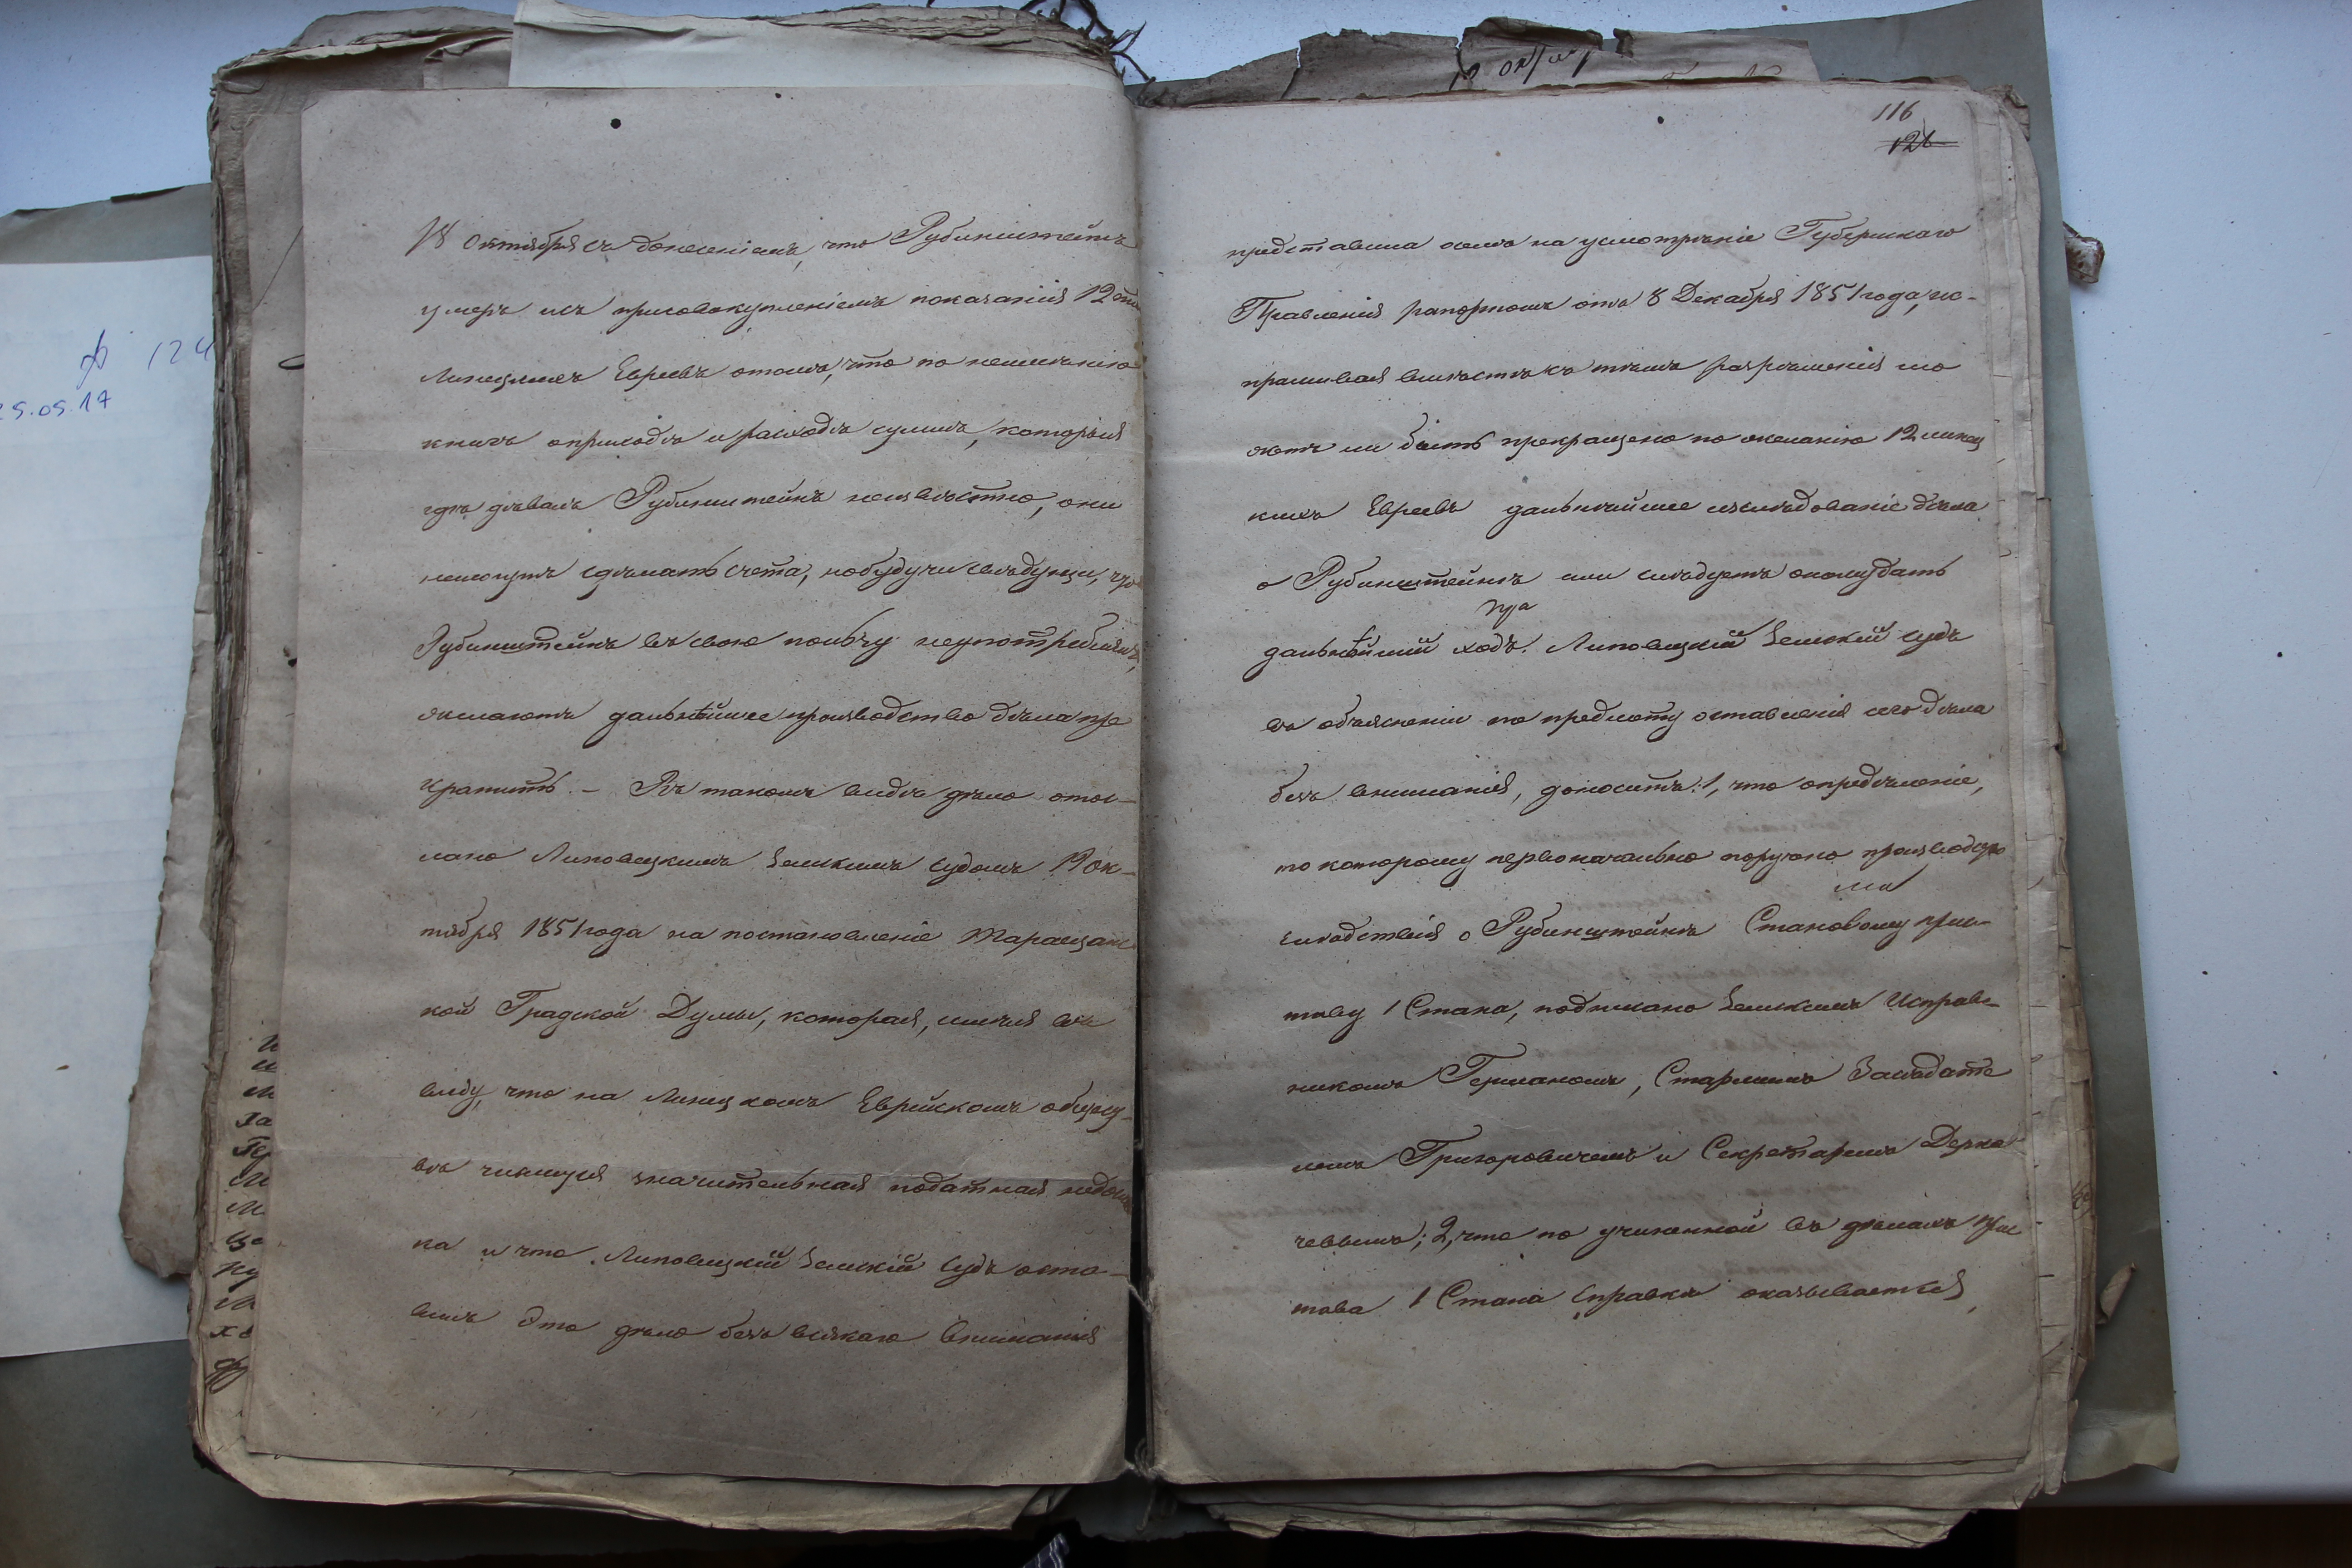 18 Октября съ донесеніемъ, что Рубинштейнъ
умеръ и съ присовокупленіемъ показанія 12ти
Линецкихъ Евреевъ о томъ, что по неимѣнію
книгъ о приходѣ и расходѣ суммъ, которыя
гдѣ дѣвалъ Рубинштейнъ неизвѣстно, они
немогутъ сдѣлать счета, но будучи увѣрены, что
Рубинштейнъ въ свою пользу неупотреблялъ,
желаютъ дальнѣйшее производство дѣла пре
кратить. – Въ такомъ видѣ дѣло отос-
лано Липовецкимъ Земскимъ Судомъ 19 Ок-
тября 1851 года на постановленіе Таращанс
кой Градской Думы, которая, имѣя въ
виду, что на Линецкомъ Еврейскомъ общест-
вѣ числится значительная податная недоим
ка и что Липовецкій Земскій Судъ оста-
вилъ это дѣло безъ всякаго вниманія
116
126
представила оное на усмотрѣніе Губернскаго
Правленія рапортомъ отъ 8 Декабря 1851 года, ис-
прашивая вмѣстѣ съ тѣмъ разрѣшенія мо
жетъ ли быть прекращено по желанію 12 линец
кихъ Евреевъ дальнѣйшее изслѣдованіе дѣла
о Рубинштейнѣ или слѣдуетъ оному дать
дальнѣйшій ходъ. Липовецкій Земскій Судъ
въ объясненіи по предмету оставленія сего дѣла
безъ вниманія, доноситъ: 1, что опредѣленіе,
по которому первоначально поручено производство
слѣдствія о Рубинштейнѣ Становому прис-
таву 1 Стана, подписано Земскимъ Исправ-
никомъ Германомъ, Старшимъ Засѣдате
лемъ Григоровичемъ и Секретаремъ
2, что по учиненной въ дѣлахъ Прис
тава 1 Стана справкѣ оказывается,
25.05.17